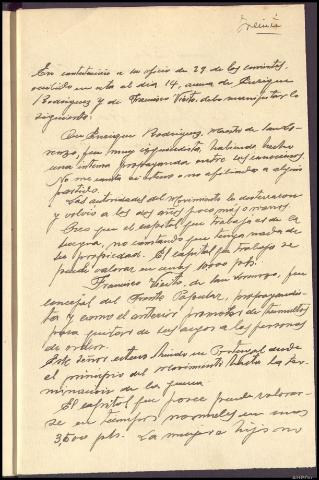 En contestación a su oficio de 29 de los corrientes,
recibido en esta el día 14, acerca de Enrique
Rodríguez y de Francisco Vieito, debo manifestar lo
siguiente:
Don Enrique Rodríguez, maestro de San Lo-
renzo, fue muy izquierdista, habiendo hecho
una intensa propaganda entre los convecinos.
No me consta si estuvo o no afiliado a algún
partido.
Las autoridades del Movimiento lo desterraron
y volvió a los dos años poco más o menos.
Creo que el capital que trabaja es de la
suegra, no constando que tenga nada de
su propiedad. El capital que trabaja se
puede valorar en unas 10.000 pts.
Francisco Vieito, de Santo Domingo, fue
concejal del Frente Popular, propagandis-
ta y como el anterior promotor de tumultos
para quitar de sus cargos a las personas
de orden.
Este señor estuvo huido en Portugal desde
el principio del movimiento hasta la ter-
minación de la guerra.
El capital que posee puede valorar-
se en tiempos normales en unas
3,500 pts. La mujer e hijos no